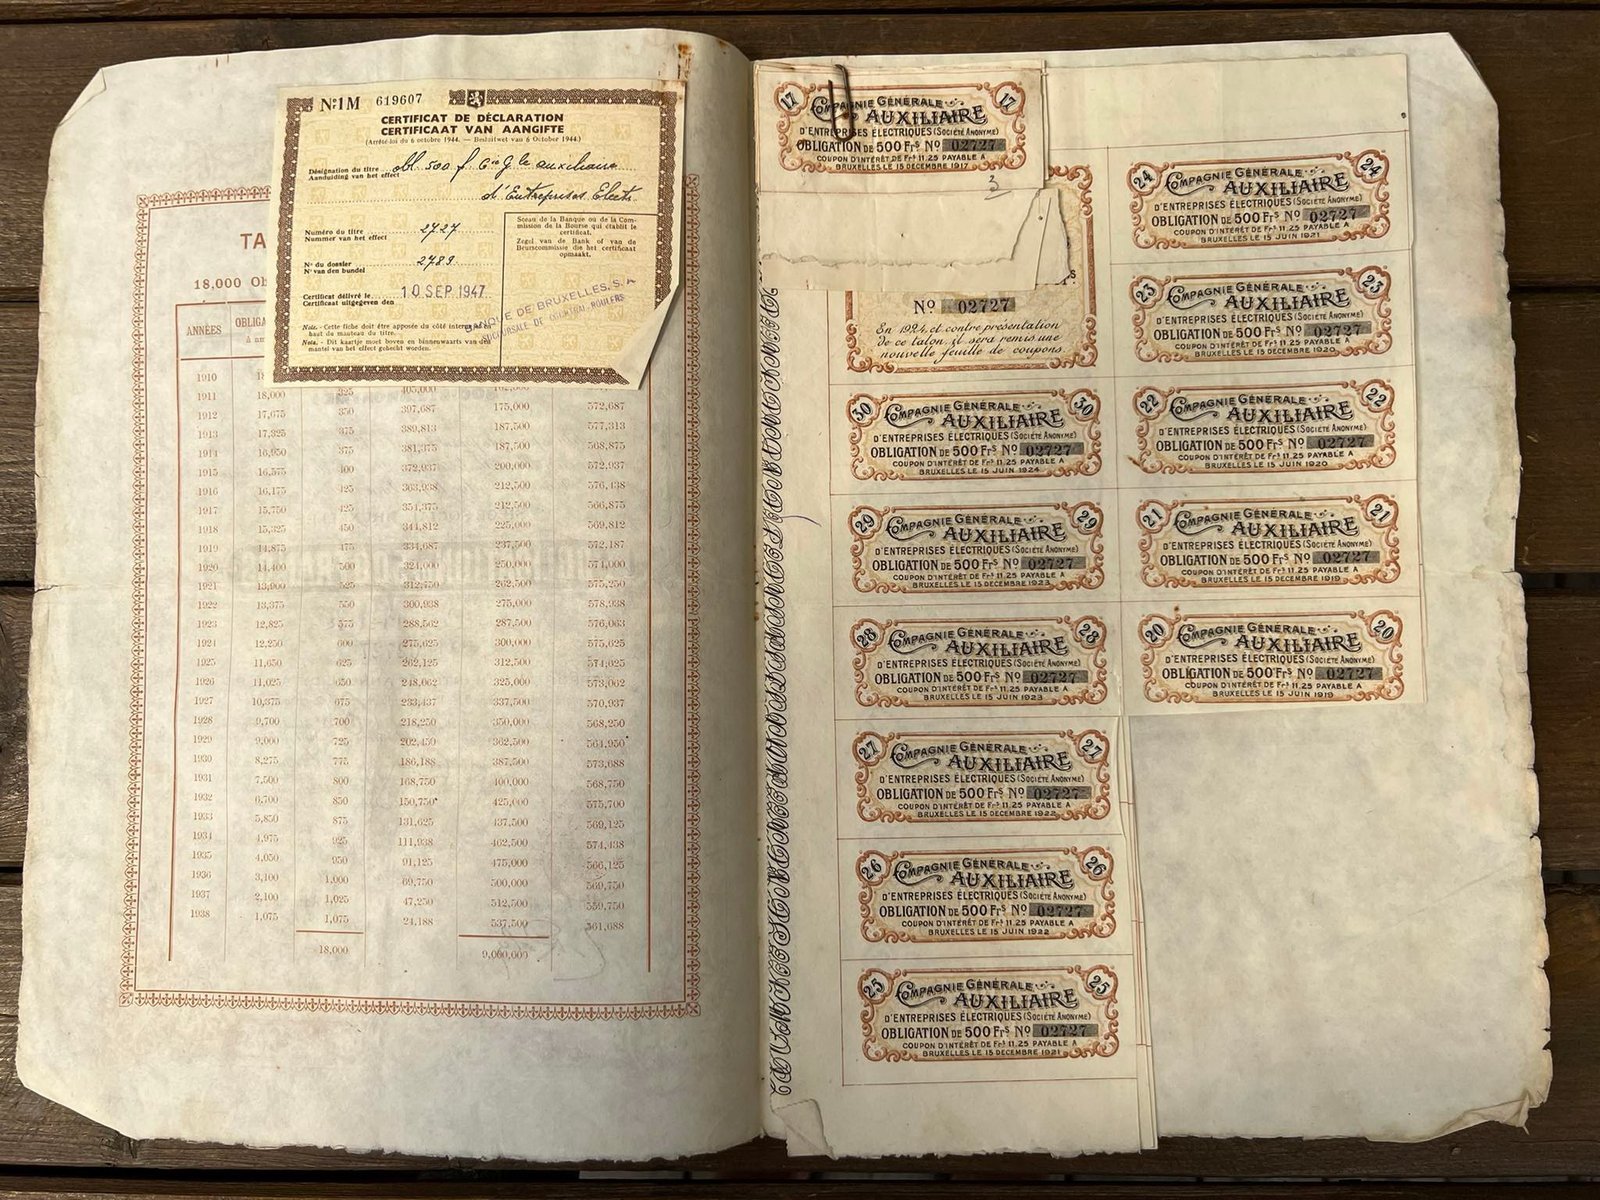 N° 1M 619607
CERTIFICAT DE DÉCLARATION
CERTIFICAAT VAN AANGIFTE
(Arrêté-loi du 6 octobre 1944. — Besluitwet van 6 October 1944.)
Désignation du titre
Aanduiding van het effect
obl. 500 f Cie Gle auxiliaire
d'Entreprises Electr.
Numéro du titre
Nummer van het effect
2727
N° du dossier
N° van den bundel
2789
Certificat délivré le
Certificaat uitgegeven den
10 SEP. 1947
Sceau de la Banque ou de la Com-
mission de la Bourse qui établit le
certificat.
Zegel van de Bank of van de
Beurscommissie die het certificaat
opmaakt.
BANQUE DE BRUXELLES, S. A.
SUCCURSALE DE COURTRAI-ROULERS
Nota. - Cette fiche doit être apposée du côté interne au
haut du manteau du titre.
Nota. - Dit kaartje moet boven en binnenwaarts van den
mantel van het effect gehecht worden.
TA
18,000 Ob
ANNÉES OBLIGA
à am
1910
1911 18,000 325 405,000
1912 17,675 350 397,687 175,000 572,687
1913 17,325 375 389,813 187,500 577,313
1914 16,950 375 381,375 187,500 568,875
1915 16,575 400 372,937 200,000 572,937
1916 16,175 425 363,938 212,500 576,438
1917 15,750 425 354,375 212,500 566,875
1918 15,325 450 344,812 225,000 569,812
1919 14,875 475 334,687 237,500 572,187
1920 14,400 500 324,000 250,000 574,000
1921 13,900 525 312,750 262,500 575,250
1922 13,375 550 300,938 275,000 578,938
1923 12,825 575 288,562 287,500 576,063
1924 12,250 600 275,625 300,000 575,625
1925 11,650 625 262,125 312,500 574,625
1926 11,025 650 248,062 325,000 573,062
1927 10,375 675 233,437 337,500 570,937
1928 9,700 700 218,250 350,000 568,250
1929 9,000 725 202,450 362,500 564,950
1930 8,275 775 186,188 387,500 573,688
1931 7,500 800 168,750 400,000 568,750
1932 6,700 850 150,750 425,000 575,700
1933 5,850 875 131,625 437,500 569,125
1934 4,975 925 111,938 462,500 574,438
1935 4,050 950 91,125 475,000 566,125
1936 3,100 1,000 69,750 500,000 569,750
1937 2,100 1,025 47,250 512,500 559,750
1938 1,075 1,075 24,188 537,500 561,688
18,000 9,000,000
17 17
COMPAGNIE GÉNÉRALE
AUXILIAIRE
D'ENTREPRISES ÉLECTRIQUES (SOCIÉTÉ ANONYME)
OBLIGATION DE 500 FRS NO 02727
COUPON D'INTÉRÊT DE FRS 11.25 PAYABLE A
BRUXELLES LE 15 DECEMBRE 1917
3
NO 02727
En 1924, et contre présentation
de ce talon, il sera remis une
nouvelle feuille de coupons.
30 30
COMPAGNIE GÉNÉRALE
AUXILIAIRE
D'ENTREPRISES ÉLECTRIQUES (SOCIÉTÉ ANONYME)
OBLIGATION DE 500 FRS NO 02727
COUPON D'INTÉRÊT DE FRS 11.25 PAYABLE A
BRUXELLES LE 15 JUIN 1924
29 29
COMPAGNIE GÉNÉRALE
AUXILIAIRE
D'ENTREPRISES ÉLECTRIQUES (SOCIÉTÉ ANONYME)
OBLIGATION DE 500 FRS NO 02727
COUPON D'INTÉRÊT DE FRS 11.25 PAYABLE A
BRUXELLES LE 15 DECEMBRE 1923
28 28
COMPAGNIE GÉNÉRALE
AUXILIAIRE
D'ENTREPRISES ÉLECTRIQUES (SOCIÉTÉ ANONYME)
OBLIGATION DE 500 FRS NO 02727
COUPON D'INTÉRÊT DE FRS 11.25 PAYABLE A
BRUXELLES LE 15 JUIN 1923
27 27
COMPAGNIE GÉNÉRALE
AUXILIAIRE
D'ENTREPRISES ÉLECTRIQUES (SOCIÉTÉ ANONYME)
OBLIGATION DE 500 FRS NO 02727
COUPON D'INTÉRÊT DE FRS 11.25 PAYABLE A
BRUXELLES LE 15 DECEMBRE 1922
26 26
COMPAGNIE GÉNÉRALE
AUXILIAIRE
D'ENTREPRISES ÉLECTRIQUES (SOCIÉTÉ ANONYME)
OBLIGATION DE 500 FRS NO 02727
COUPON D'INTÉRÊT DE FRS 11.25 PAYABLE A
BRUXELLES LE 15 JUIN 1922
25 25
COMPAGNIE GÉNÉRALE
AUXILIAIRE
D'ENTREPRISES ÉLECTRIQUES (SOCIÉTÉ ANONYME)
OBLIGATION DE 500 FRS NO 02727
COUPON D'INTÉRÊT DE FRS 11.25 PAYABLE A
BRUXELLES LE 15 DECEMBRE 1921
24 24
COMPAGNIE GÉNÉRALE
AUXILIAIRE
D'ENTREPRISES ÉLECTRIQUES (SOCIÉTÉ ANONYME)
OBLIGATION DE 500 FRS NO 02727
COUPON D'INTÉRÊT DE FRS 11.25 PAYABLE A
BRUXELLES LE 15 JUIN 1921
23 23
COMPAGNIE GÉNÉRALE
AUXILIAIRE
D'ENTREPRISES ÉLECTRIQUES (SOCIÉTÉ ANONYME)
OBLIGATION DE 500 FRS NO 02727
COUPON D'INTÉRÊT DE FRS 11.25 PAYABLE A
BRUXELLES LE 15 DECEMBRE 1920
22 22
COMPAGNIE GÉNÉRALE
AUXILIAIRE
D'ENTREPRISES ÉLECTRIQUES (SOCIÉTÉ ANONYME)
OBLIGATION DE 500 FRS NO 02727
COUPON D'INTÉRÊT DE FRS 11.25 PAYABLE A
BRUXELLES LE 15 JUIN 1920
21 21
COMPAGNIE GÉNÉRALE
AUXILIAIRE
D'ENTREPRISES ÉLECTRIQUES (SOCIÉTÉ ANONYME)
OBLIGATION DE 500 FRS NO 02727
COUPON D'INTÉRÊT DE FRS 11.25 PAYABLE A
BRUXELLES LE 15 DECEMBRE 1919
20 20
COMPAGNIE GÉNÉRALE
AUXILIAIRE
D'ENTREPRISES ÉLECTRIQUES (SOCIÉTÉ ANONYME)
OBLIGATION DE 500 FRS NO 02727
COUPON D'INTÉRÊT DE FRS 11.25 PAYABLE A
BRUXELLES LE 15 JUIN 1919